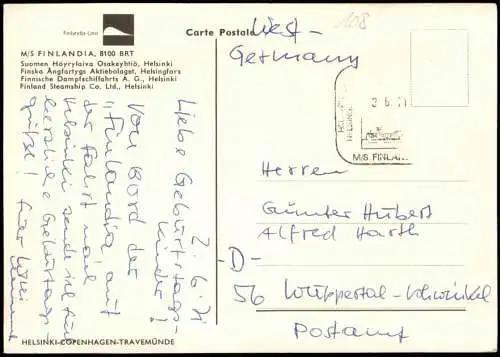 Finlandia-Line
Carte Postale
M/S FINLANDIA, 8100 BRT
Suomen Höyrylaiva Osakeyhtiö, Helsinki
Finska Ångfartygs Aktiebolaget, Helsingfors
Finnische Dampfschiffahrts A. G., Helsinki
Finland Steamship Co. Ltd., Helsinki
2. 6. 71
Liebe Geburtstags-
kinder!
Von Bord der
"Finlandia", auf
der Fahrt nach
Helsinki sende ich Euch
herzliche Geburtstags-
grüße!
Euer
HELSINKI-COPENHAGEN-TRAVEMÜNDE
108
West-
Germany
2. 6. 71
M/S. FINLA
Herren
Günter Hubert
Alfred Harth
-D-
56 Wuppertal-Vohwinkel
Postamt